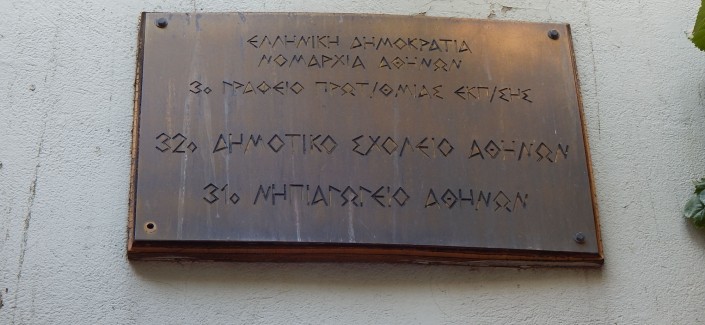 ΕΛΛΗΝΙΚΗ ΔΗΜΟΚΡΑΤΙΑ
ΝΟΜΑΡΧΙΑ ΑΘΗΝΩΝ
3ο ΓΡΑΦΕΙΟ ΠΡΩΤ/ΘΜΙΑΣ ΕΚΠ/ΣΗΣ
32ο ΔΗΜΟΤΙΚΟ ΣΧΟΛΕΙΟ ΑΘΗΝΩΝ
31ο ΝΗΠΙΑΓΩΓΕΙΟ ΑΘΗΝΩΝ